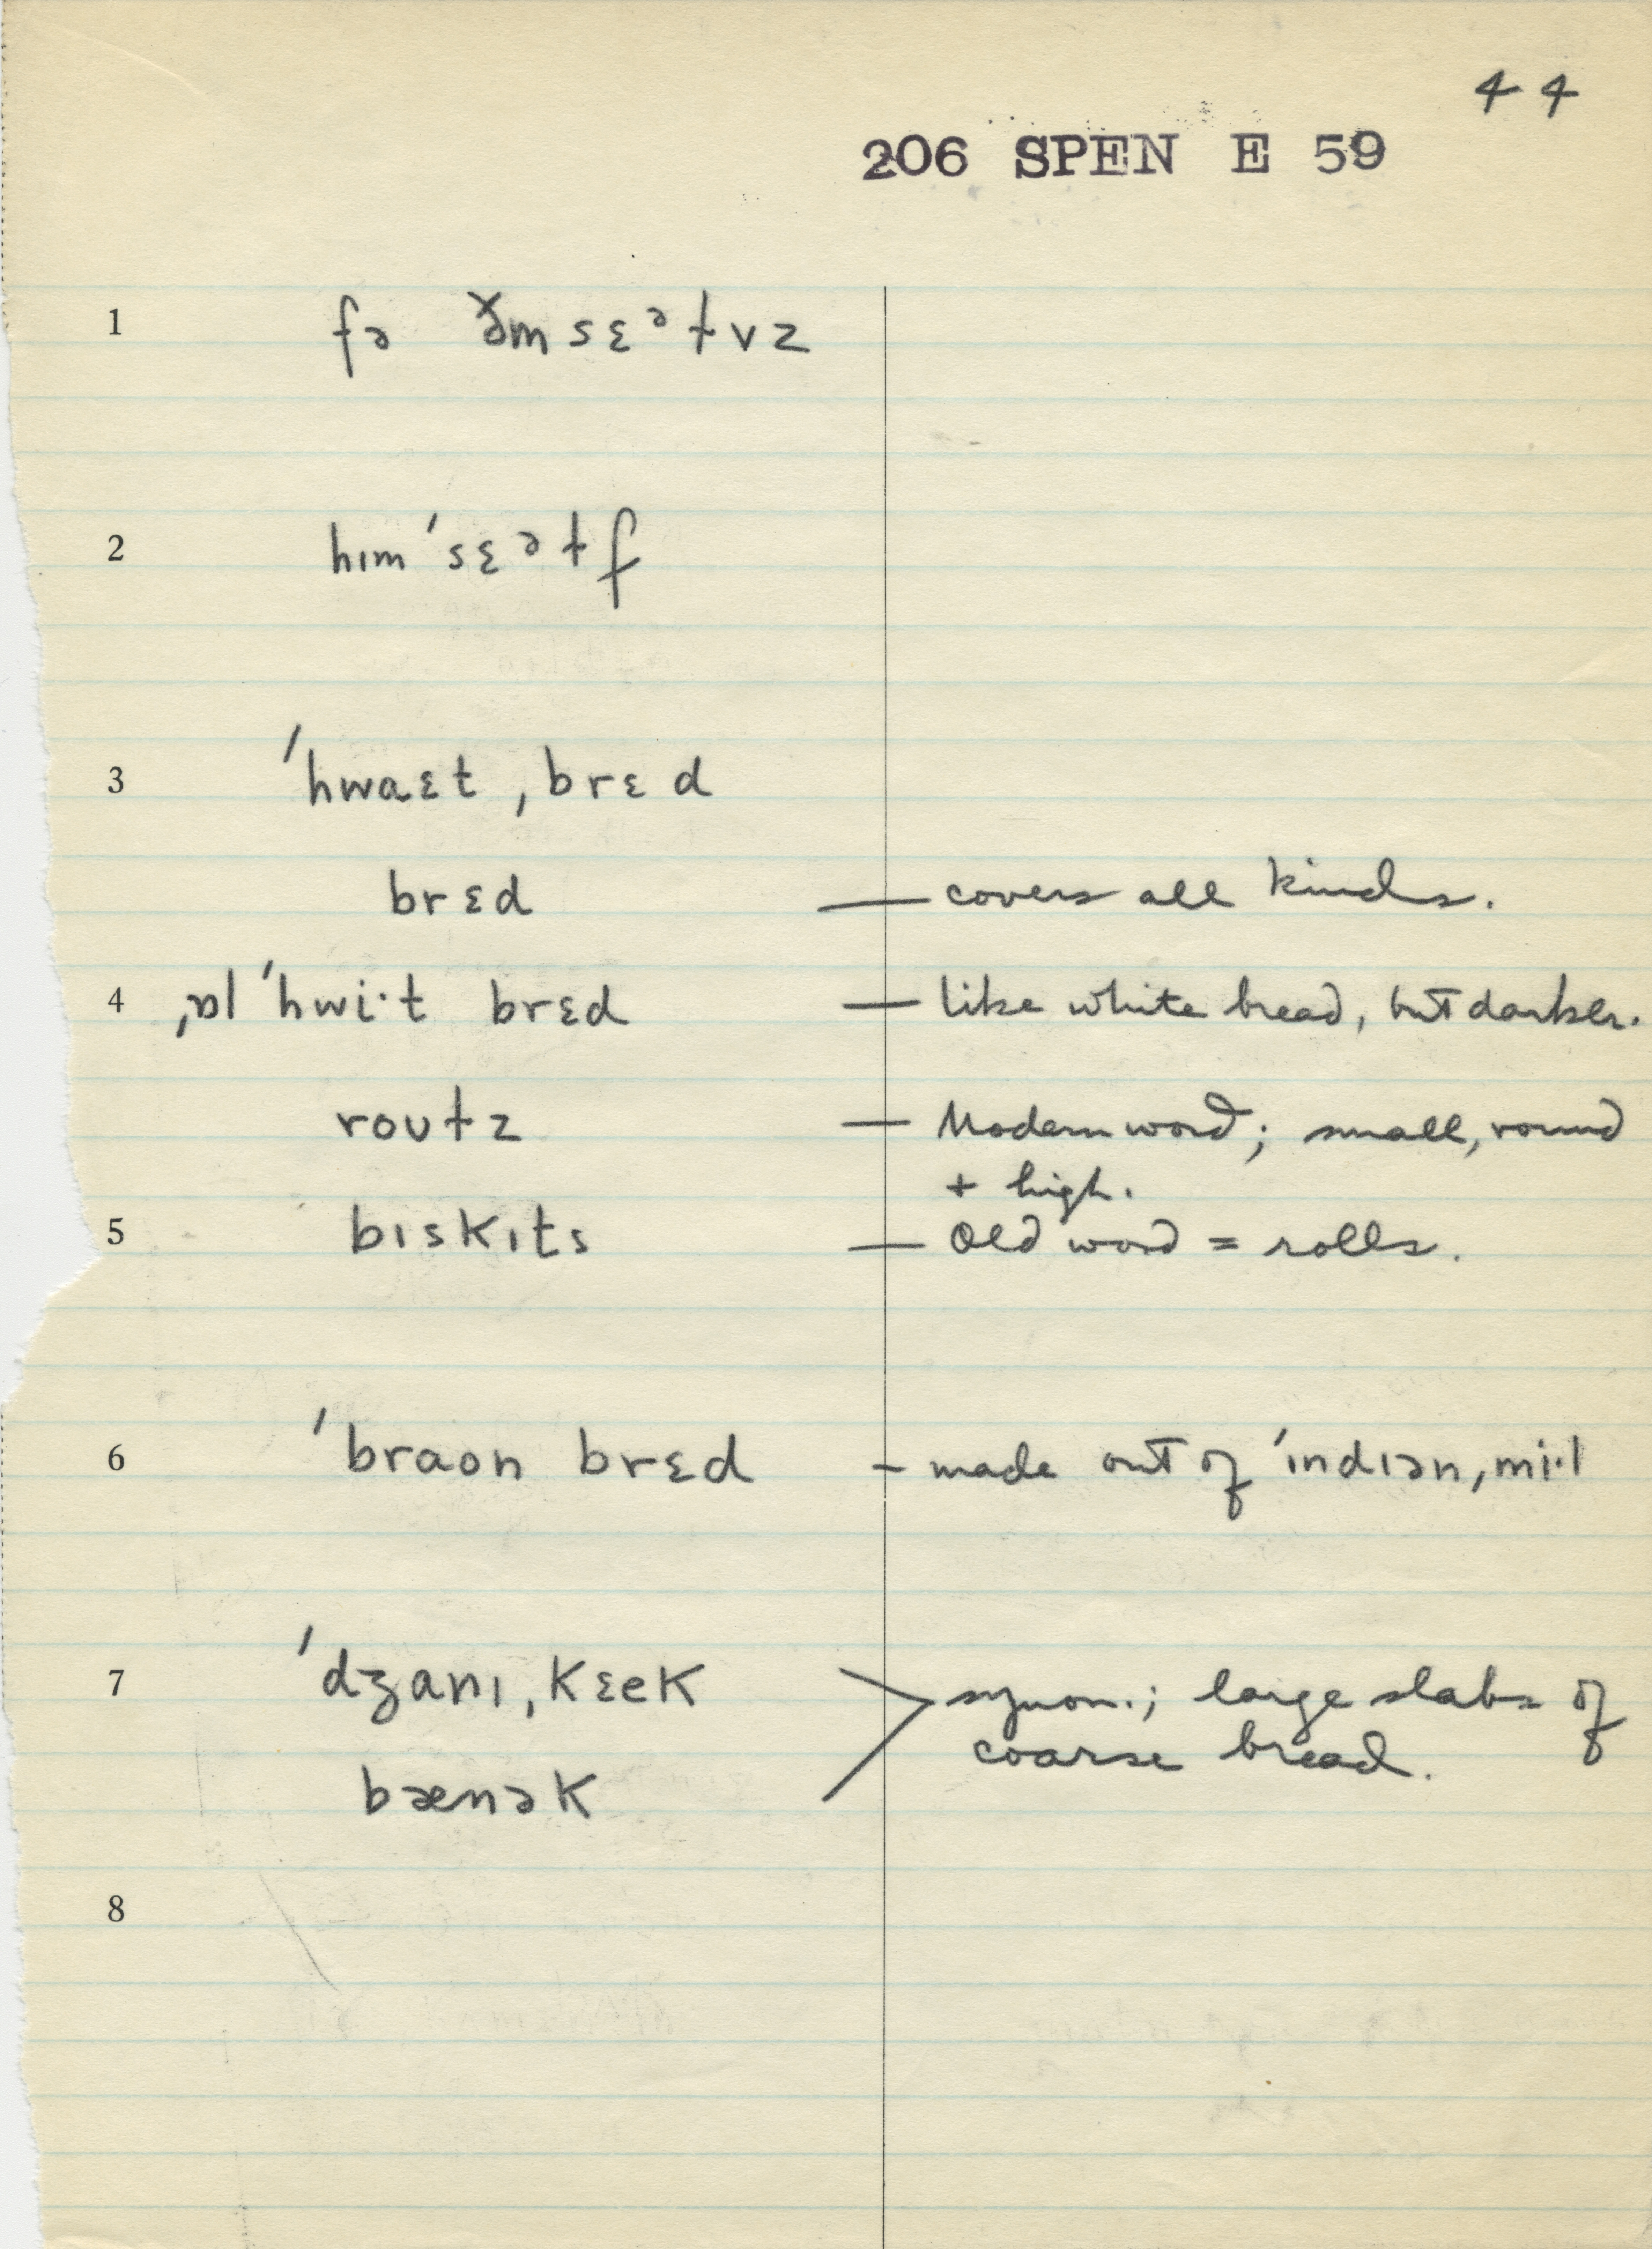 44
206 SPEN E 59
1 fə ðəmsɛᵊɫvz
2 hɪmˈsɛᵊɫf
3 ˈhwaɛt ˌbrɛd
brɛd — covers all kinds.
4 ˌɒlˈhwi·t brɛd — like white bread, but darker.
roʊɫz — Modern word; small, round
+ high.
5 bɪskɪts — Old word = rolls.
6 ˈbraon brɛd – made out of ˈɪndɪən ˌmi·l
7 ˈdʒanɪ ˌkɛek > synon.; large slabs of
coarse bread.
bænək
8